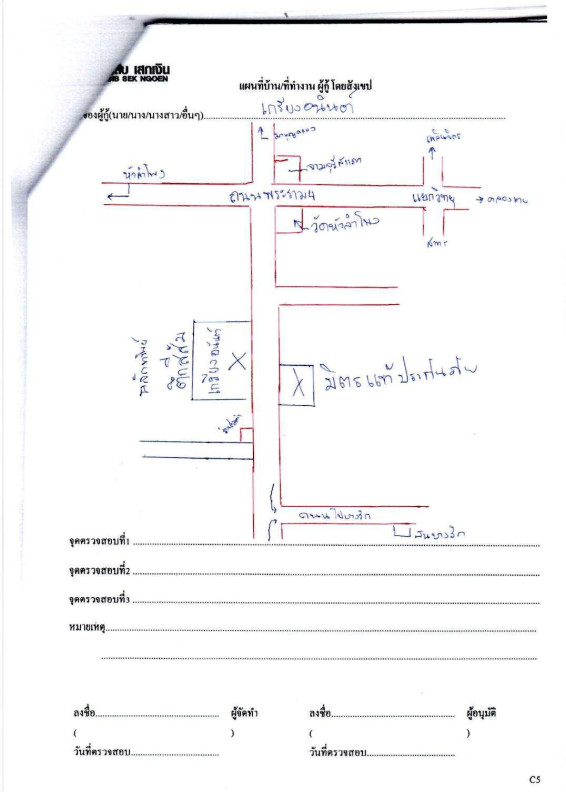 เสกเงิน
SEK NGOEN
แผนที่บ้าน/ที่ทำงาน ผู้กู้ โดยสังเขป
ของผู้กู้(นาย/นาง/นางสาว/อื่นๆ) เกรียงอนันต์
หัวลำโพง
จามจุรีสแควร์
เพลินจิต
ถนนพระราม4
แยกวิทยุ
คลองเตย
วัดหัวลำโพง
สาทร
ตึกสีส้ม
เกรียงอนันต์
X
X
มิตรแท้ประกันภัย
ถนนไปบางรัก
จุดตรวจสอบที่1
จุดตรวจสอบที่2
จุดตรวจสอบที่3
หมายเหตุ
ลงชื่อ ผู้จัดทำ ลงชื่อ ผู้อนุมัติ
( ) ( )
วันที่ตรวจสอบ วันที่ตรวจสอบ
C5